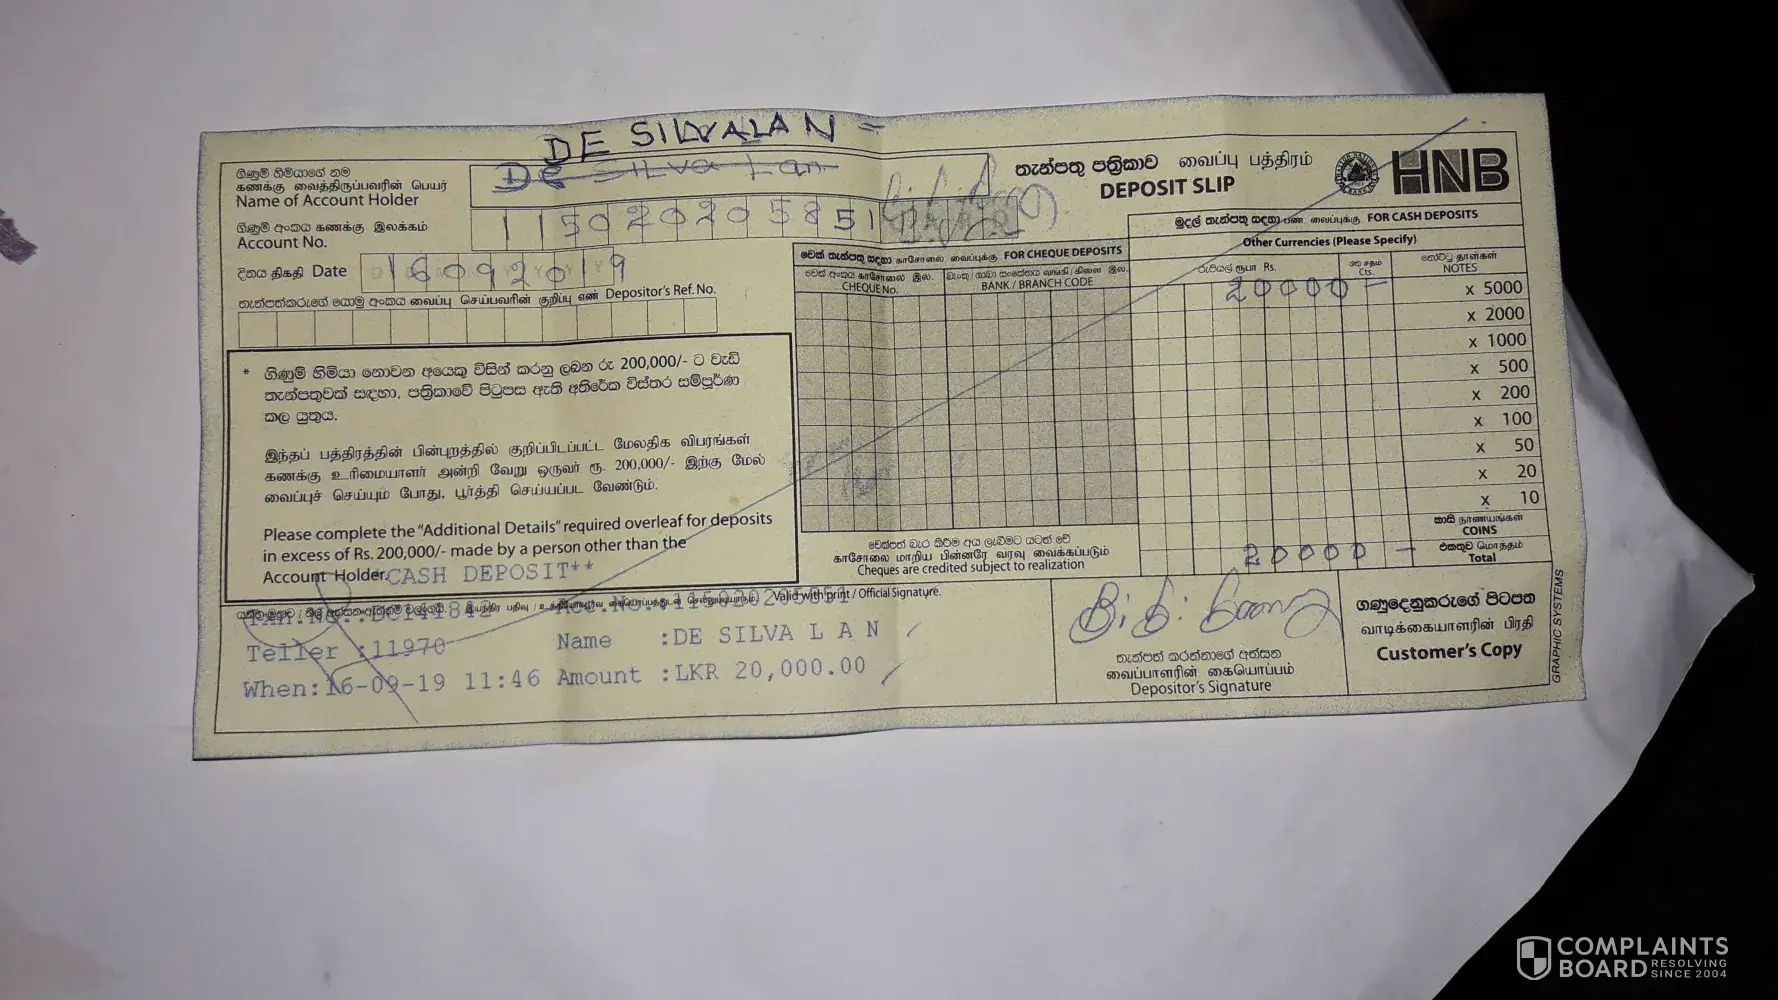 DE SILVA LAN =
De Silva Lan
ගිණුම් හිමියාගේ නම
கணக்கு வைத்திருப்பவரின் பெயர்
Name of Account Holder
තැන්පතු පත්‍රිකාව வைப்பு பத்திரம்
DEPOSIT SLIP
HNB
ගිණුම් අංකය கணக்கு இலக்கம்
Account No.
115020205851
දිනය திகதி Date
16092019
තැන්පත්කරුගේ යොමු අංකය வைப்பு செய்பவரின் குறிப்பு எண் Depositor's Ref. No.
චෙක් තැන්පතු සඳහා காசோலை வைப்புக்கு FOR CHEQUE DEPOSITS
චෙක් අංකය காசோலை இல.
CHEQUE No.
BANK / BRANCH CODE
මුදල් තැන්පතු සඳහා பண வைப்புக்கு FOR CASH DEPOSITS
Other Currencies (Please Specify)
රුපියල් ரூபா Rs.
ශත சதம்
Cts.
නෝට්ටු தாள்கள்
NOTES
20000 –
x 5000
x 2000
x 1000
x 500
x 200
x 100
x 50
x 20
x 10
කාසි நாணயங்கள்
COINS
එකතුව மொத்தம்
Total
20000 –
* ගිණුම් හිමියා නොවන අයෙකු විසින් කරනු ලබන රු 200,000/- ට වැඩි
තැන්පතුවක් සඳහා, පත්‍රිකාවේ පිටුපස ඇති අතිරේක විස්තර සම්පූර්ණ
කල යුතුය.
இந்தப் பத்திரத்தின் பின்புறத்தில் குறிப்பிடப்பட்ட மேலதிக விபரங்கள்
கணக்கு உரிமையாளர் அன்றி வேறு ஒருவர் ரூ. 200,000/- இற்கு மேல்
வைப்புச் செய்யும் போது, பூர்த்தி செய்யப்பட வேண்டும்.
Please complete the "Additional Details" required overleaf for deposits
in excess of Rs. 200,000/- made by a person other than the
Account Holder.
චෙක්පත් බැර කිරීම අය ලැබීමට යටත් වේ
காசோலை மாறிய பின்னரே வரவு வைக்கப்படும்
Cheques are credited subject to realization
CASH DEPOSIT**
Valid with print / Official Signature.
Txn.No.:DC141842 Acc.No.:115020205851
Teller :11970 Name :DE SILVA L A N
When:16-09-19 11:46 Amount :LKR 20,000.00
තැන්පත් කරන්නාගේ අත්සන
வைப்பாளரின் கையொப்பம்
Depositor's Signature
ගණුදෙනුකරුගේ පිටපත
வாடிக்கையாளரின் பிரதி
Customer's Copy
GRAPHIC SYSTEMS
COMPLAINTS
BOARD RESOLVING
SINCE 2004